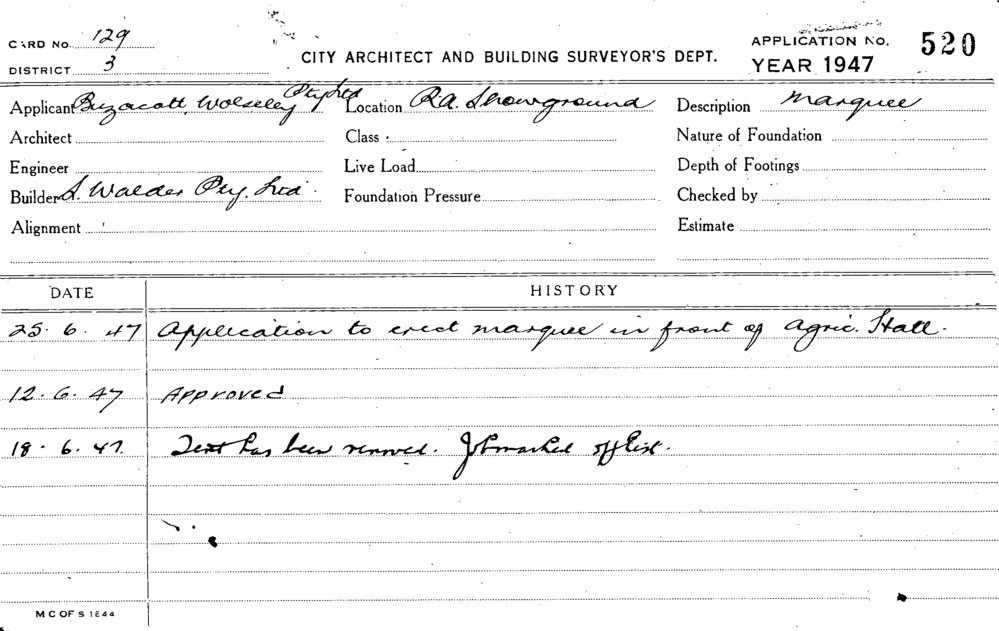 CARD No. 129
DISTRICT 3
CITY ARCHITECT AND BUILDING SURVEYOR'S DEPT.
APPLICATION No. 520
YEAR 1947
Applicant Buzacott Wolseley Pty Ltd
Location R.A. Showground
Description marquee
Architect
Class
Nature of Foundation
Engineer
Live Load
Depth of Footings
Builder S. Walder Pty. Ltd.
Foundation Pressure
Checked by
Alignment
Estimate
DATE HISTORY
25. 6. 47 Application to erect marquee in front of Agric. Hall.
12. 6. 47 Approved
18. 6. 47. Tent has been removed. Job marked off list.
M C OF S 1844